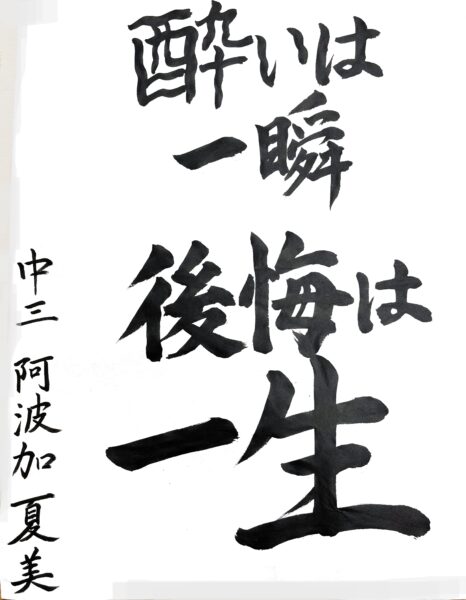 酔いは
一瞬
後悔は
一生
中三 阿波加 夏美